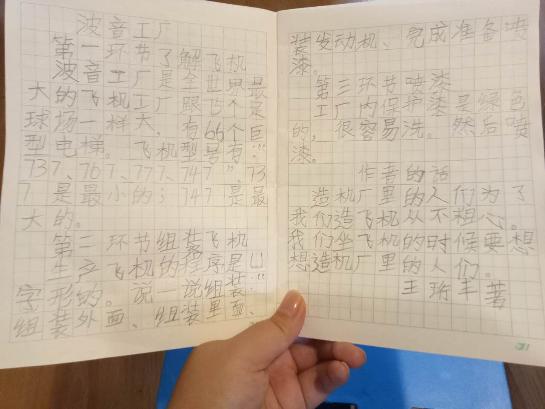 波音工厂
第一环节了解飞机
波音工厂是全世界最
大的飞机工厂跟个足
球场一样大,有66个巨
型电梯。飞机型号有:“
737、767、777、747”,73
7是最小的;747是最
大的。
第二环节组装飞机
生产飞机的程序是山
字形的。说一说组装:“
组装外面、组装里面、
装发动机、完成准备喷
漆。
第三环节喷漆
工厂内保护漆是绿色
的,很容易洗。然后喷
漆。
作者的话
造机厂里的人们为了
我们造飞机从不粗心。
我们坐飞机的时候要想
想造机厂里的人们。
王珩丰著